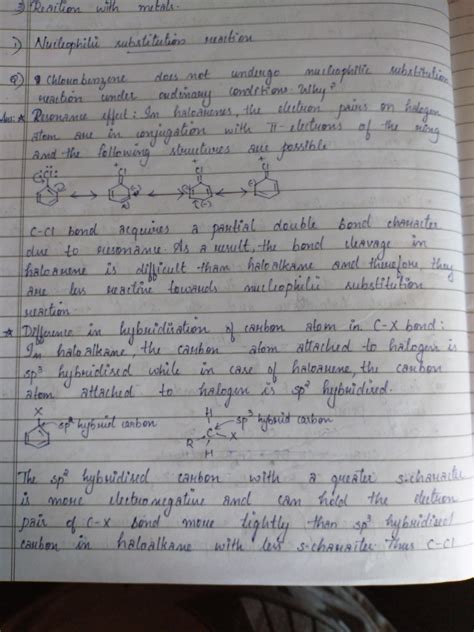 3) Reaction with metals.
1) Nucleophilic substitution reaction
Q) Chlorobenzene does not undergo nucleophilic substitution
reaction under ordinary conditions. Why?
Ans: * Resonance effect: In haloarenes, the electron pairs on halogen
atom are in conjugation with π-electrons of the ring
and the following structures are possible
:Cl: +Cl +Cl +Cl
C-Cl bond acquires a partial double bond character
due to resonance. As a result, the bond cleavage in
haloarene is difficult than haloalkane and therefore, they
are less reactive towards nucleophilic substitution
reaction.
* Difference in hybridisation of carbon atom in C-X bond:
In haloalkane, the carbon atom attached to halogen is
sp³ hybridised while in case of haloarene, the carbon
atom attached to halogen is sp² hybridised.
X H
sp² hybrid carbon sp³ hybrid carbon
R C X
H
The sp² hybridised carbon with a greater s-character
is more electronegative and can hold the electron
pair of C-X bond more tightly than sp³ hybridised
carbon in haloalkane with less s-character. Thus C-Cl